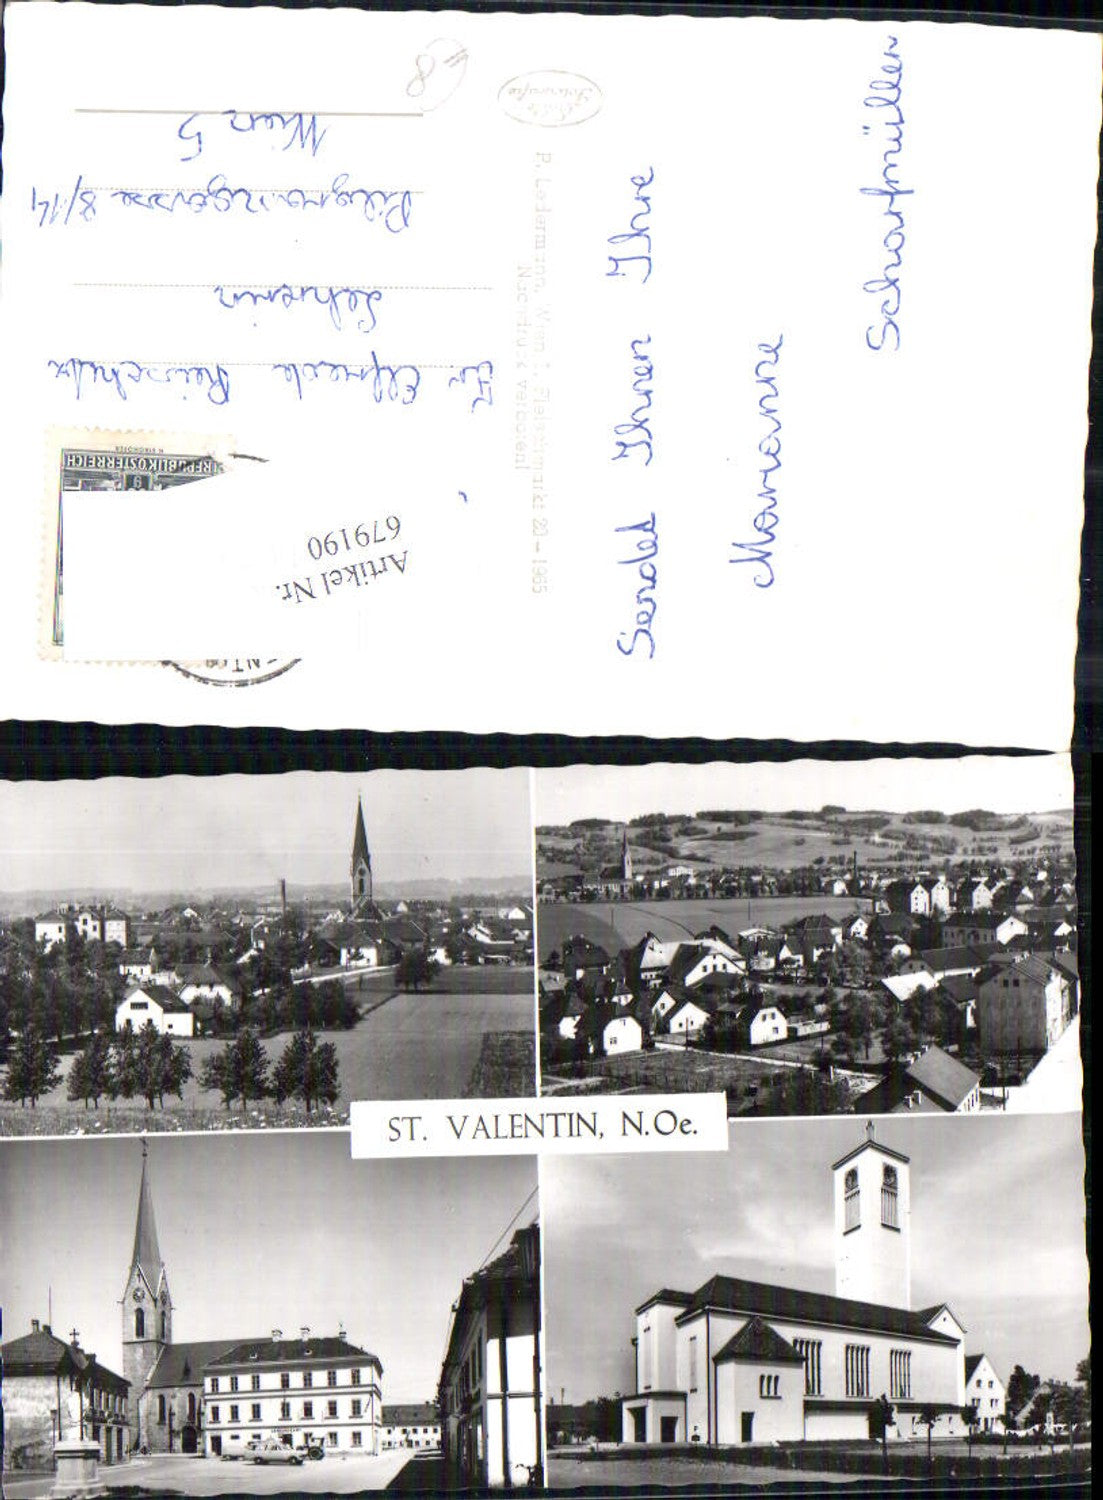 Sendet Ihnen Ihre
Marianne
Scharfmüller
P. Ledermann, Wien 1, Fleischmarkt 20 - 1965
Nachdruck verboten!
Echte
Fr. Elfriede
Lehrerin
Pilgramgasse 8/14
Wien 5
8
REPUBLIK ÖSTERREICH
Artikel Nr.
679190
ST. VALENTIN, N.Oe.